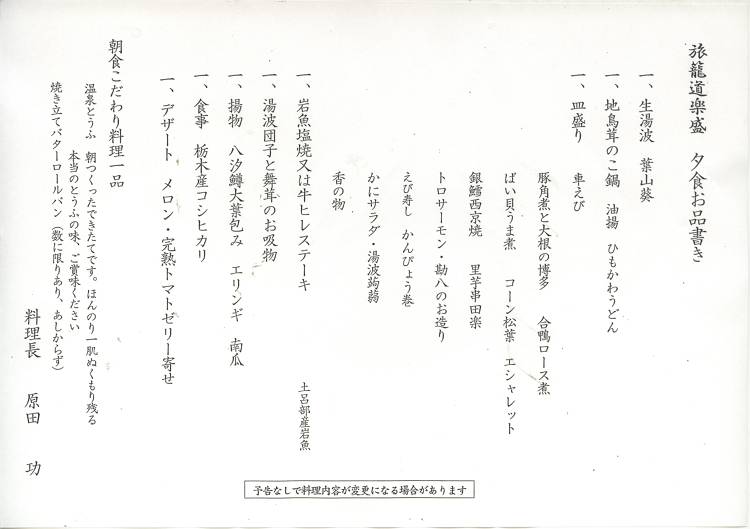 旅籠道楽盛　夕食お品書き
一、生湯波　葉山葵
一、地鳥茸のこ鍋　油揚　ひもかわうどん
一、皿盛り　車えび
豚角煮と大根の博多　合鴨ロース煮
ばい貝うま煮　コーン松葉　エシャレット
銀鱈西京焼　里芋串田楽
トロサーモン・勘八のお造り
えび寿し　かんぴょう巻
かにサラダ・湯波蒟蒻
香の物
一、岩魚塩焼又は牛ヒレステーキ　土呂部産岩魚
一、湯波団子と舞茸のお吸物
一、揚物　八汐鱒大葉包み　エリンギ　南瓜
一、食事　栃木産コシヒカリ
一、デザート　メロン・完熟トマトゼリー寄せ
朝食こだわり料理一品
温泉とうふ　朝つくったできたてです。ほんのり一肌ぬくもり残る
本当のとうふの味、ご賞味ください
焼き立てバターロールパン（数に限りあり、あしからず）
料理長　原田　功
予告なしで料理内容が変更になる場合があります